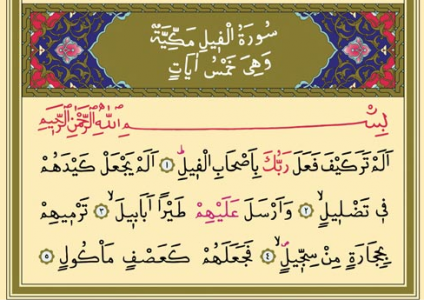 سُورَةُ الْفِيلِ مَكِّيَّةٌ
وَهِيَ خَمْسُ اٰيَاتٍ
بِسْمِ اللّٰهِ الرَّحْمٰنِ الرَّحِيمِ
اَلَمْ تَرَ كَيْفَ فَعَلَ رَبُّكَ بِاَصْحَابِ الْفِيلِۜ ﴿١﴾ اَلَمْ يَجْعَلْ كَيْدَهُمْ
فِي تَضْلِيلٍۙ ﴿٢﴾ وَاَرْسَلَ عَلَيْهِمْ طَيْرًا اَبَابِيلَۙ ﴿٣﴾ تَرْمِيهِمْ
بِحِجَارَةٍ مِنْ سِجِّيلٍۙ ﴿٤﴾ فَجَعَلَهُمْ كَعَصْفٍ مَأْكُولٍ ﴿٥﴾